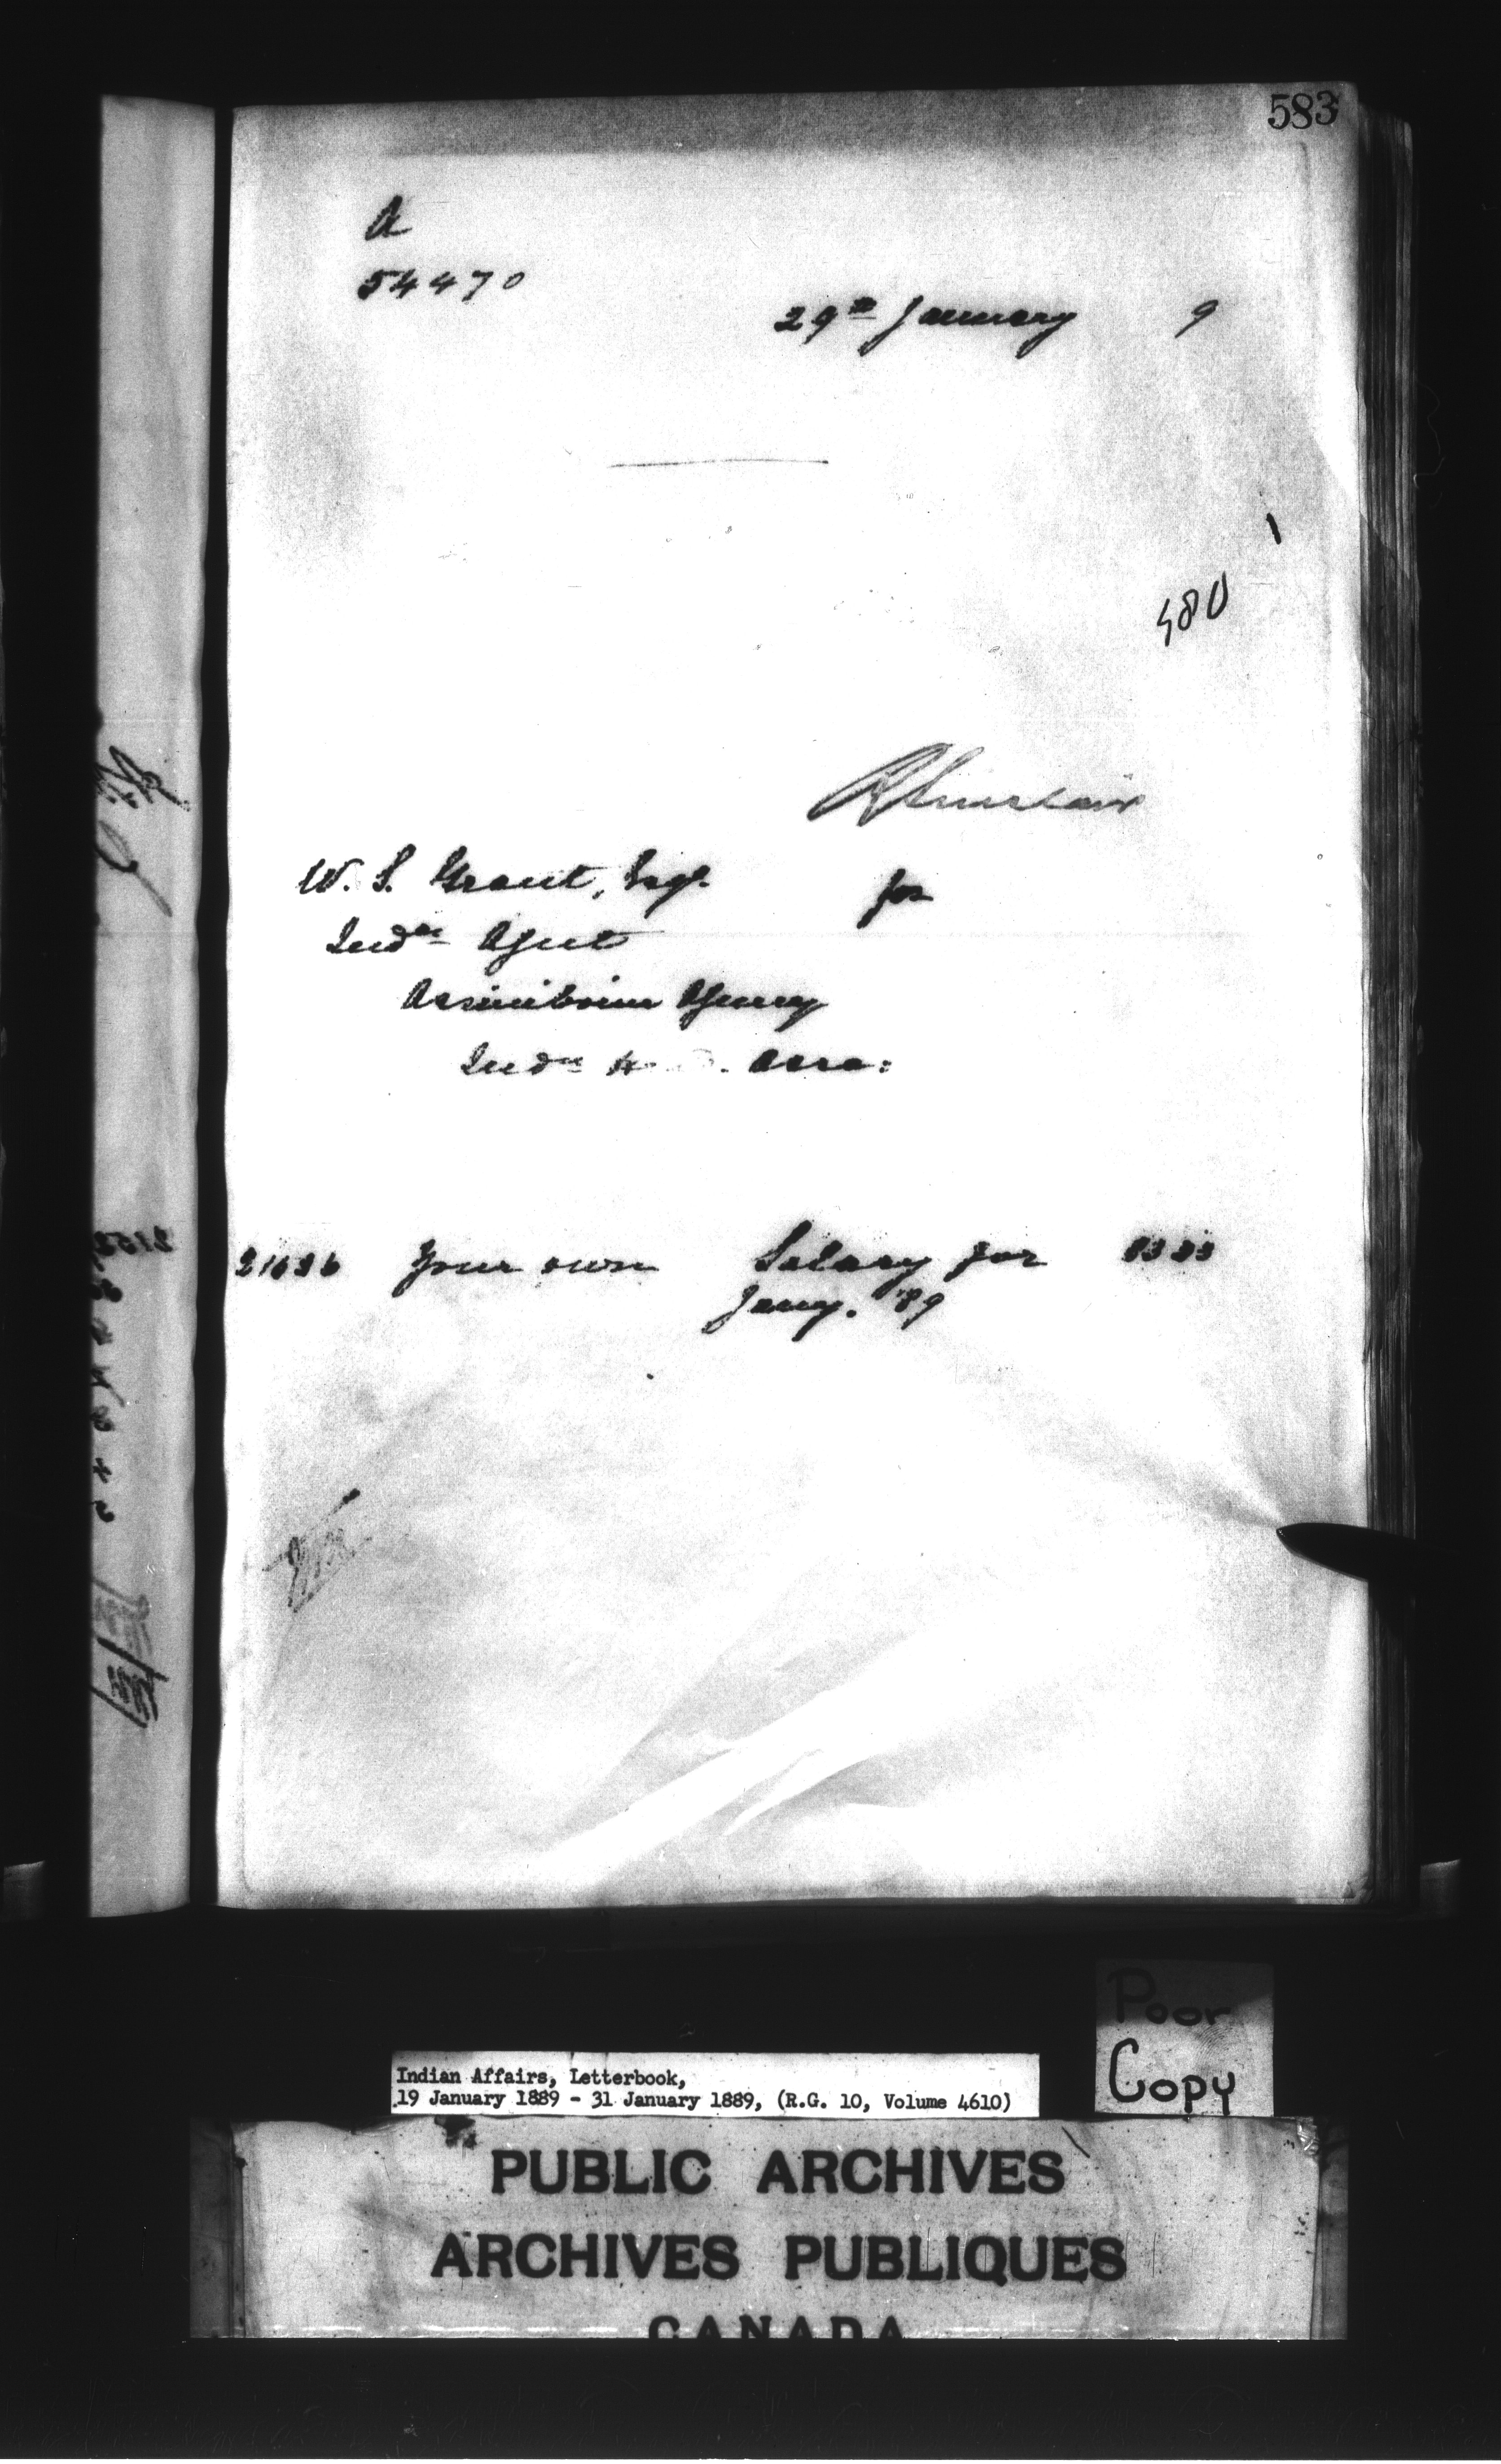 583
A
54470
29th January 9
480
R Sinclair
W. S. Grant, Esq.
for
Indn Agent
Assiniboine Agency
Indn H Assa:
21636 Your own Salary for 8333
Jany. '89
Poor
Copy
Indian Affairs, Letterbook,
19 January 1889 - 31 January 1889, (R.G. 10, Volume 4610)
PUBLIC ARCHIVES
ARCHIVES PUBLIQUES
CANADA